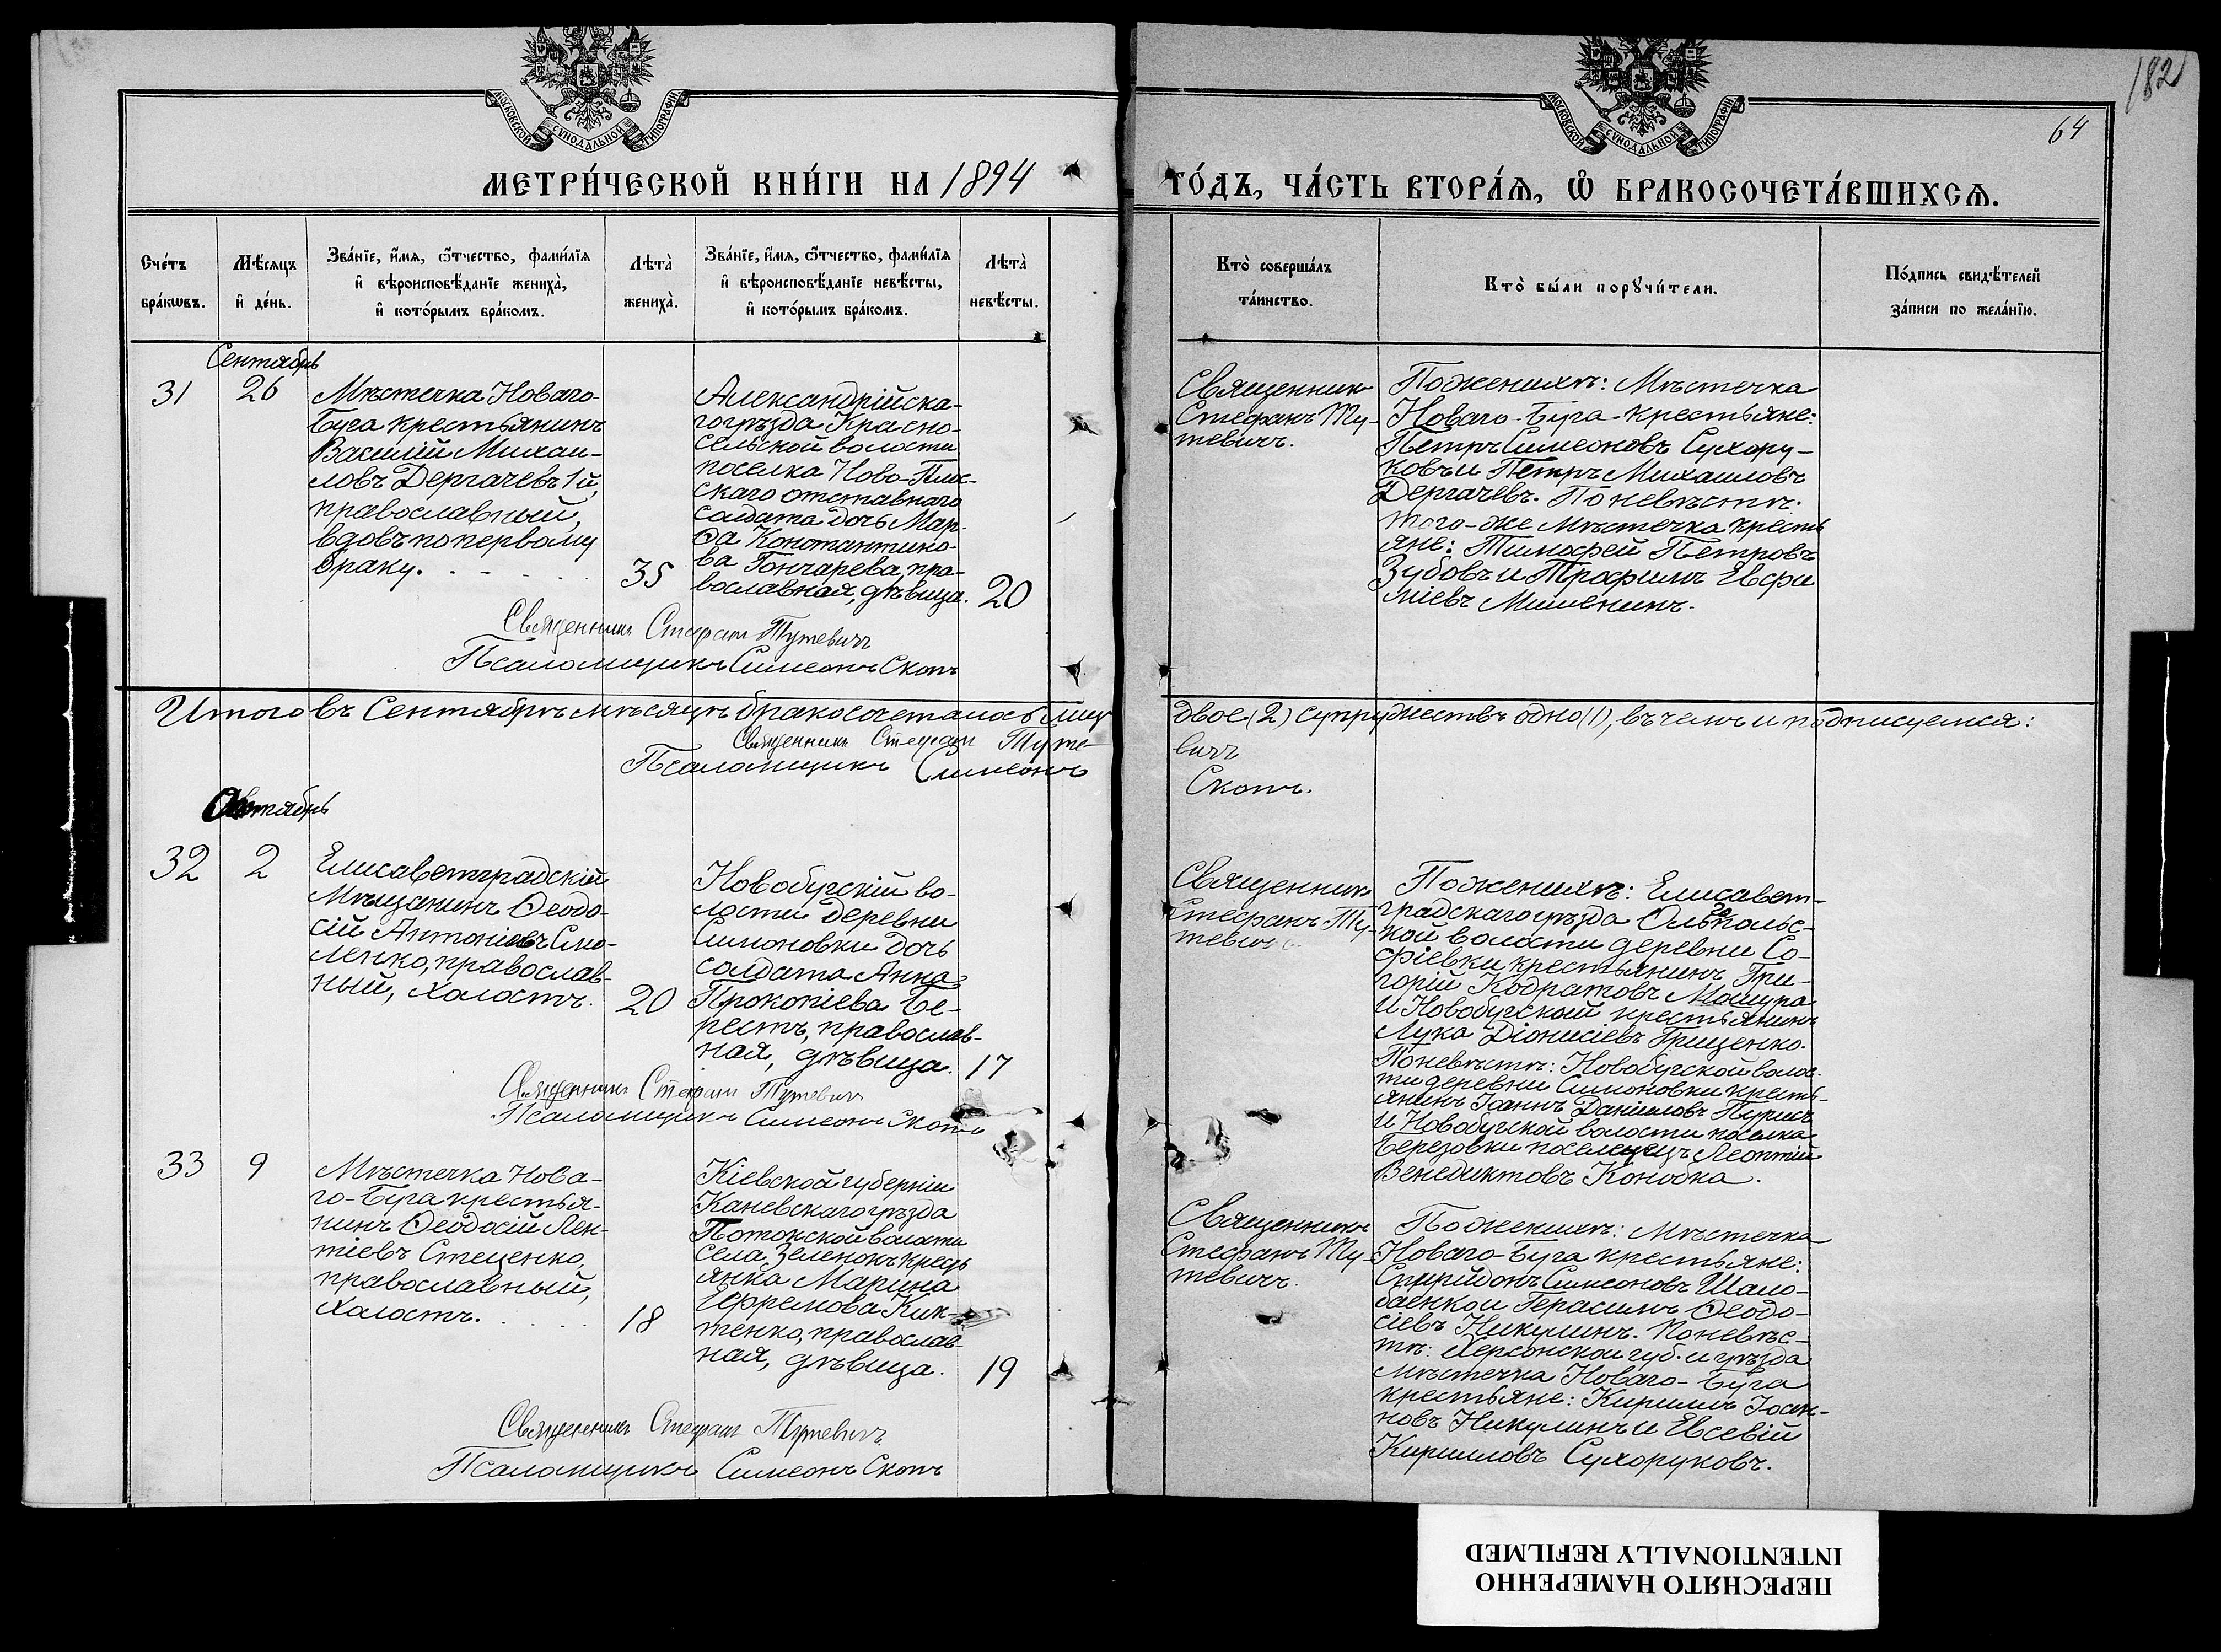 182
64
МОСКОВСКОЙ СѴНОДАЛЬНОЙ ТИПОГРАФІИ
МОСКОВСКОЙ СѴНОДАЛЬНОЙ ТИПОГРАФІИ
МЕТРИ́ЧЕСКОЙ КНИ́ГИ НА 1894
ГО́ДЪ, ЧА́СТЬ ВТОРА́Ѧ, Ѡ҆ БРАКОСОЧЕТА́ВШИХСѦ.
Сче́тъ
бра́кѡвъ.
Мѣ́сяцъ
и҆ де́нь.
Зва́нїе, и҆́мѧ, ѻ҆́тчество, фамилїѧ
и҆ вѣроисповѣ́данїе жениха̀,
и҆ кото́рымъ бра́комъ.
Лѣта̀
жениха̀.
Зва́нїе, и҆́мѧ, ѻ҆́тчество, фами́лїѧ
и҆ вѣроисповѣ́данїе невѣ́сты,
и҆ кото́рымъ бра́комъ.
Лѣта̀
невѣ́сты.
Кто̀ соверша́лъ
та́инство.
Кто̀ бы́ли порꙋчи́тели.
По́дпись свидѣ́телей
за́писи по жела́нїю.
Сентябрь
31
26
Мѣстечка Новаго-
Буга крестьянинъ
Василій Михаи-
ловъ Дергачевъ 1й,
православный,
вдовъ по первому
браку.
35
Александрійска-
го уѣзда Красно-
сельской волости
поселка Ново-Плос-
скаго отставнаго
солдата дочь Мар-
ѳа Константино-
ва Гончарева, пра-
вославная, дѣвица.
20
Священникъ Стефанъ Тутевичъ
Псаломщикъ Симеонъ Скопъ
Священникъ
Стефанъ Ту-
тевичъ.
По женихѣ: Мѣстечка
Новаго-Буга-крестьяне:
Петръ Симеоновъ Сухору-
ковъ и Петръ Михаиловъ
Дергачевъ. По невѣстѣ:
того-же мѣстечка кресть
яне: Тимофей Петровъ
Зубовъ и Трофимъ Евфи
міевъ Мишенинъ.
Итого въ Сентябрѣ мѣсяцѣ бракосочеталось лицъ
двое (2) супружествъ одно (1), въ чемъ и подписуемся:
Священникъ Стефанъ Туте-
вичъ
Псаломщикъ Симеонъ
Скопъ.
Октябрь
32
2
Елисаветградскій
Мѣщанинъ Ѳеодо-
сій Антоніевъ Смо-
ленко, православ-
ный, холостъ.
20
Новобугскій во-
лости деревни
Симоновки дочь
солдата Анна
Прокопіева Бе-
рестъ, православ-
ная, дѣвица.
17
Священникъ Стефанъ Тутевичъ
Псаломщикъ Симеонъ Скопъ
Священникъ
Стефанъ Ту-
тевичъ.
По женихѣ: Елисавет-
градскаго уѣзда Ольгопольс-
кой волости деревни Со-
фіевки крестьянинъ Гри-
горій Кодратовъ Мошура
и Новобугской крестьянинъ
Лука Діонисіевъ Грищенко.
По невѣстѣ: Новобугской волос-
ти деревни Симоновки кресть-
янинъ Іоаннъ Даніиловъ
и Новобугской волости поселка
Березовки поселенецъ Леонтій
Венедиктовъ Конобка.
33
9
Мѣстечка Нова-
го-Буга крестья-
нинъ Ѳеодосій Леон-
тіевъ Стеценко,
православный,
холостъ.
18
Кіевской губерніи
Каневскаго уѣзда
Потокской волости
села Зеленокъ кресть
янка Марина
Ефремова Кик-
тенко, православ-
ная, дѣвица.
19
Священникъ Стефанъ Тутевичъ
Псаломщикъ Симеонъ Скопъ
Священникъ
Стефанъ Ту-
тевичъ.
По женихѣ: Мѣстечка
Новаго-Буга крестьяне:
Спиридонъ Симеоновъ Шало-
баенко и Герасимъ Ѳеодо-
сіевъ Никулинъ. По невѣс-
тѣ: Херсонской губ. и уѣзда
мѣстечка Новаго-Буга
крестьяне: Кириллъ Іоан-
новъ Никулинъ и Евсевій
Кирилловъ Сухоруковъ.
ПЕРЕСНЯТО НАМЕРЕННО
INTENTIONALLY REFILMED